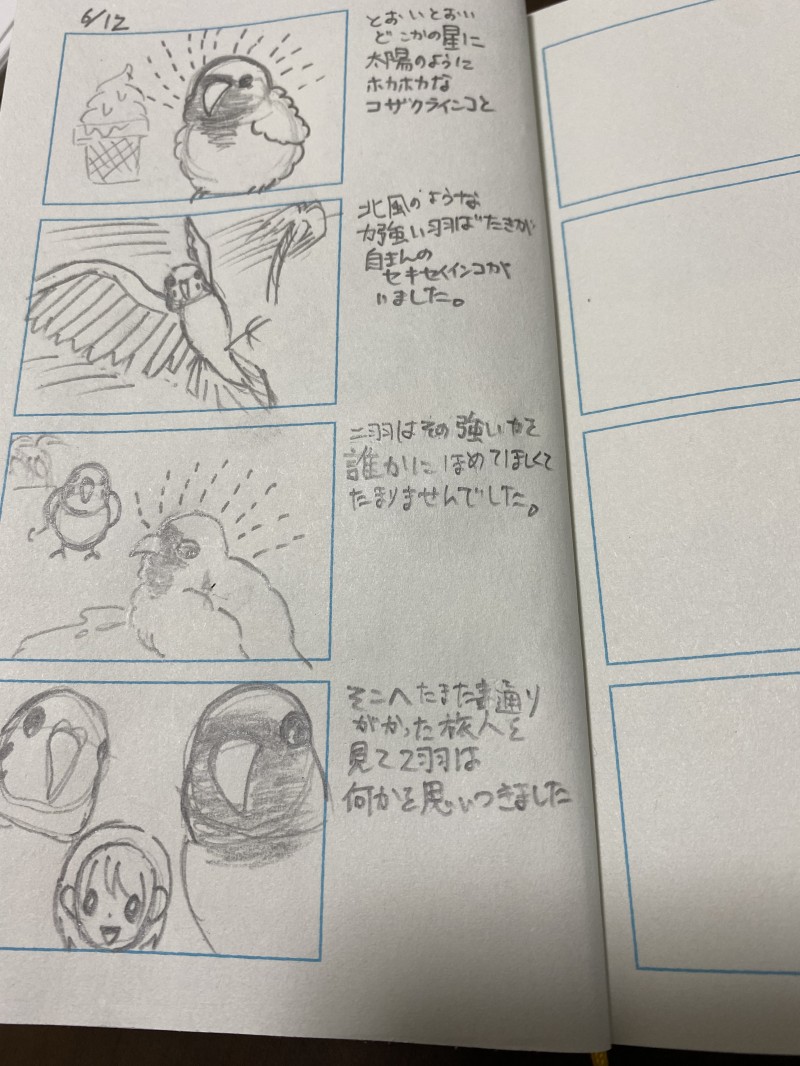 6/12
とおいとおい
どこかの星に
太陽のように
ホカホカな
コザクラインコと
北風のような
力強い羽ばたきが
自まんの
セキセイインコが
いました。
二羽はその強いかを
誰かにほめてほしくて
たまりませんでした。
そこへたまたま通り
がかった旅人を
見て2羽は
何かを思いつきました